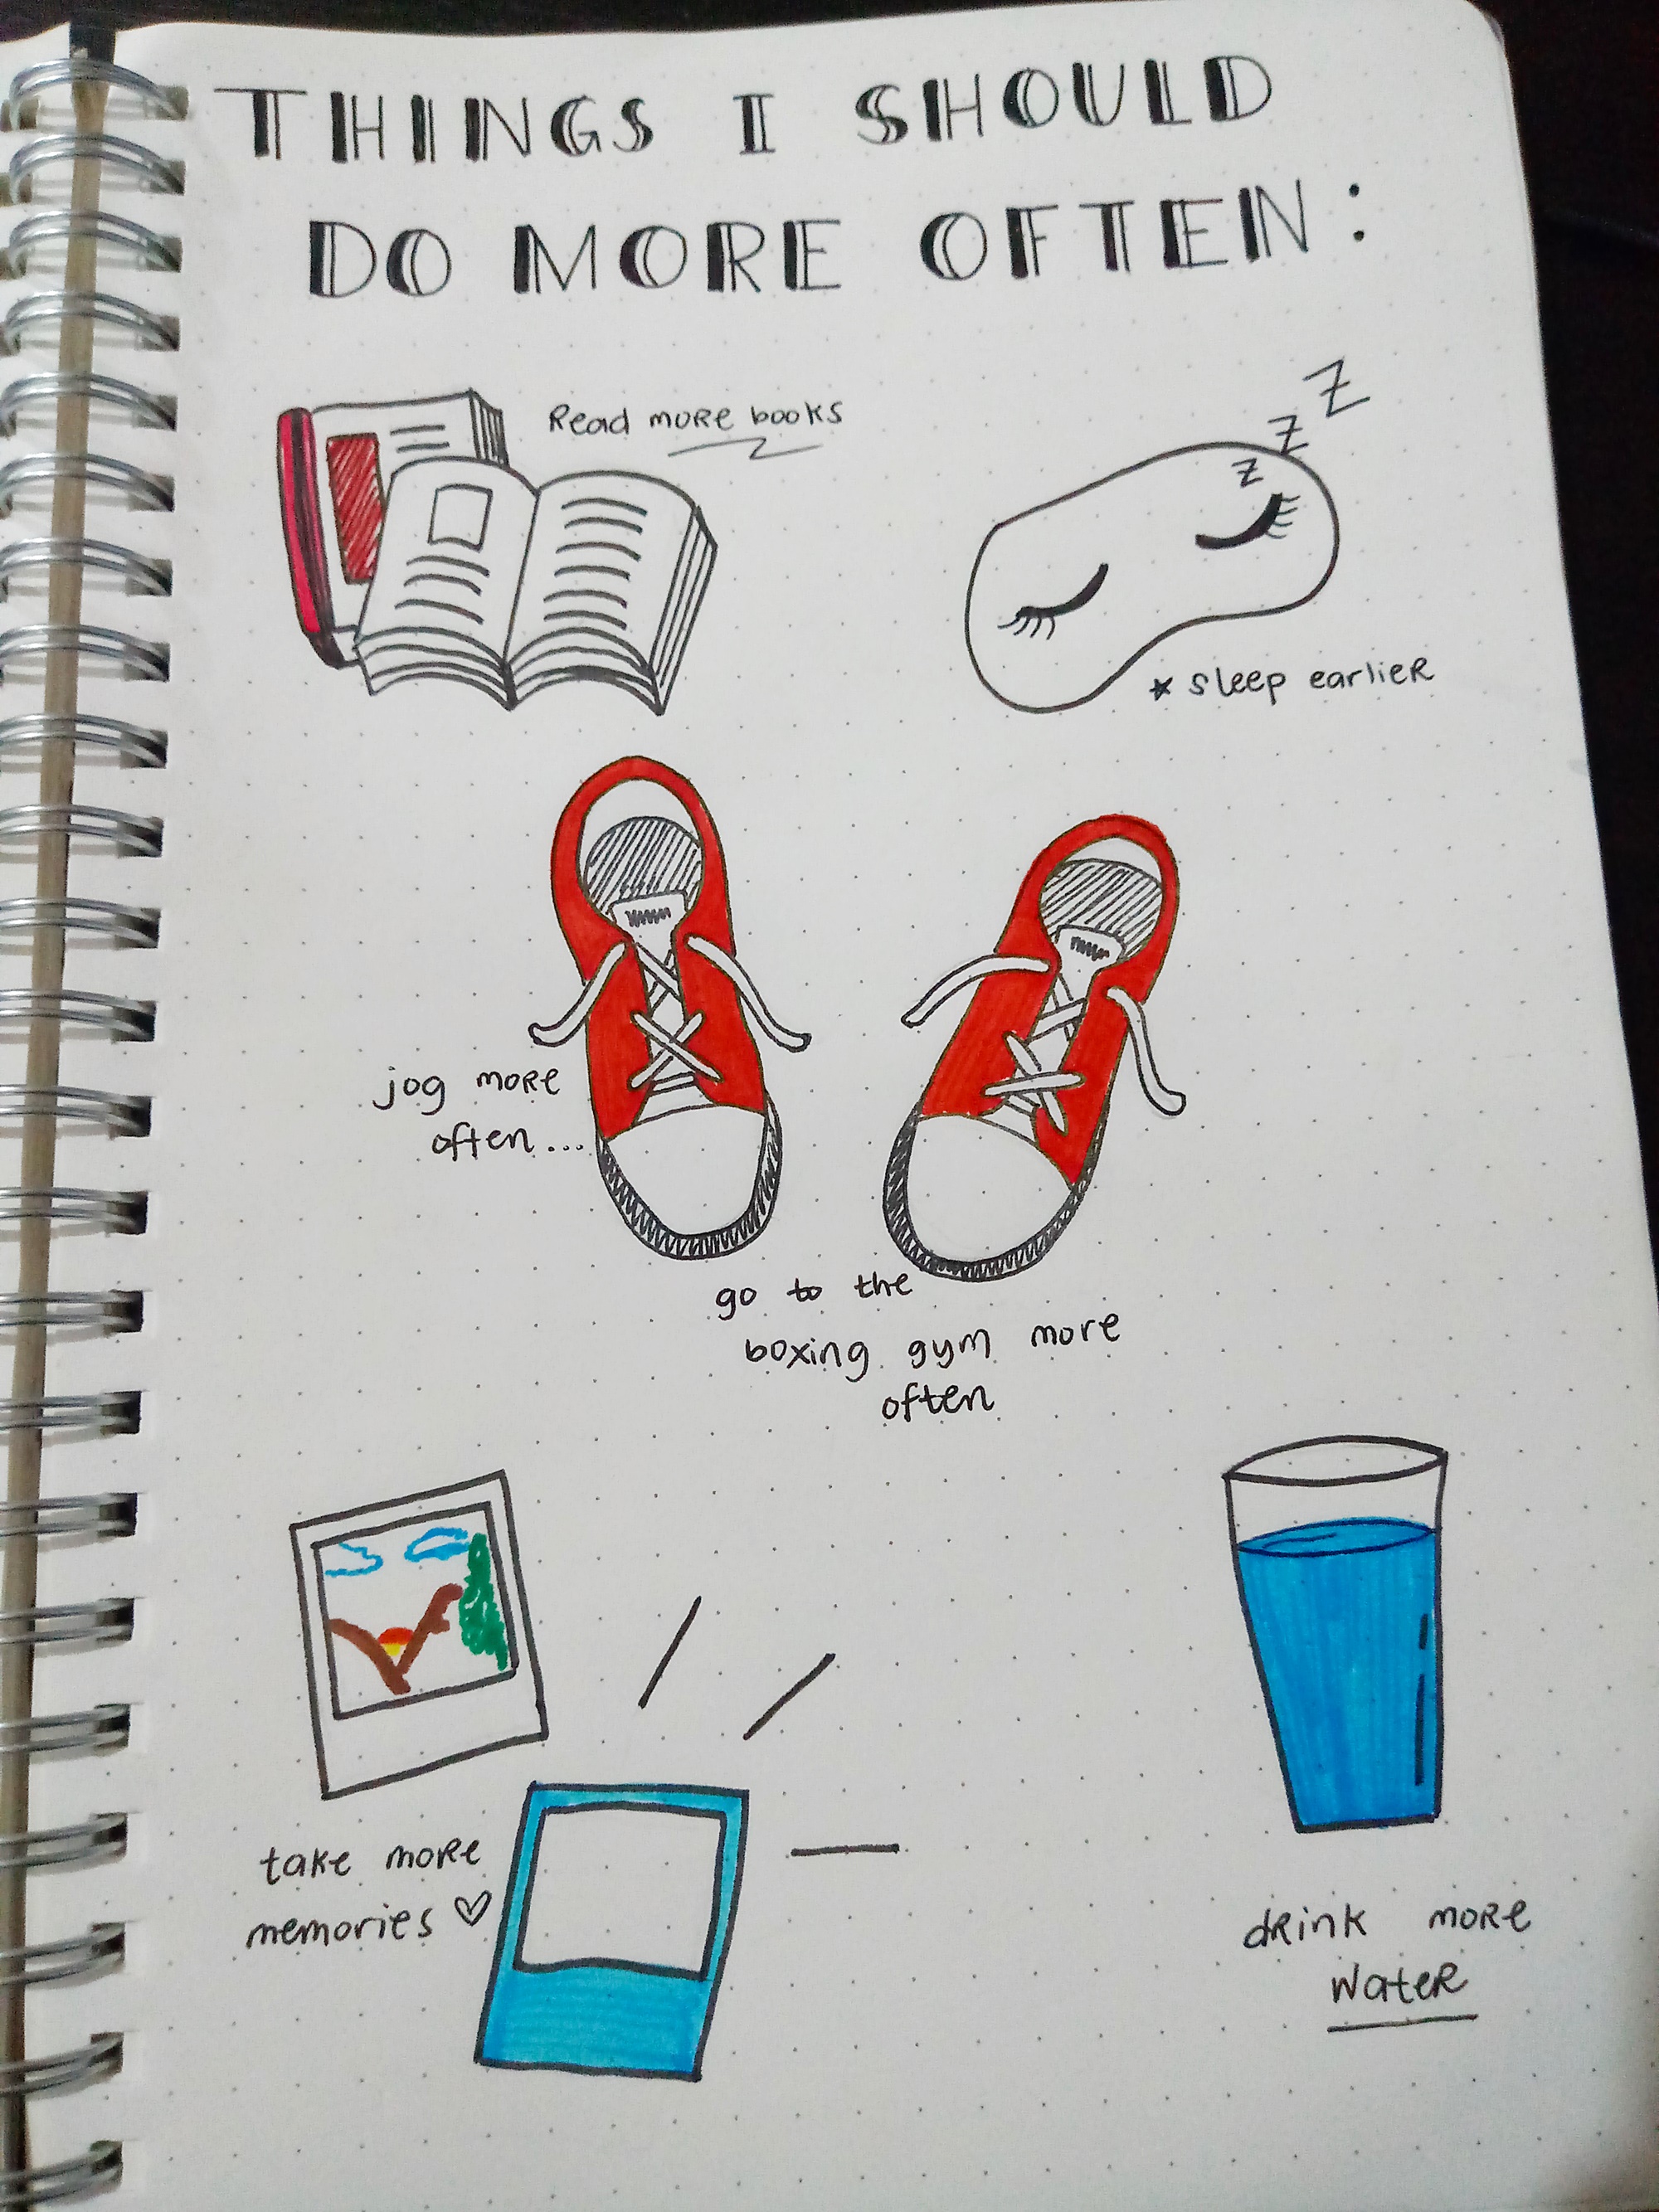 THINGS I SHOULD
DO MORE OFTEN:
Read more books
z z z
* sleep earlier
jog more
often...
go to the
boxing gym more
often
take more
memories ♡
drink more
water